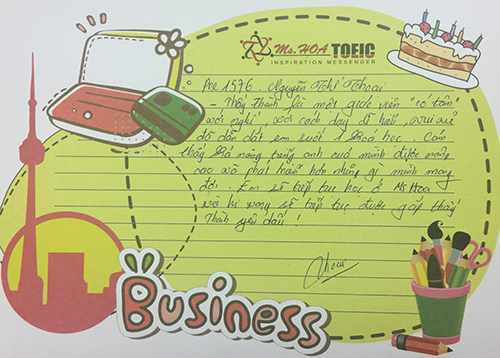 Ms. HOA TOEIC
INSPIRATION MESSENGER
Pre 1576. Nguyễn Thị Thoai
- Thầy Thanh là một giác viên "có tâm"
với nghề, với cách dạy dễ hiểu, vui vẻ
đã dẫn dắt em suốt 1 khoá học. Cảm
thấy khả năng tiếng anh của mình được nâng
cao và phát triển hơn những gì mình mong
đợi. Em sẽ tiếp tục học ở Ms Hoa
với hi vọng sẽ tiếp tục được gặp thầy
Thanh yêu dấu!
Business